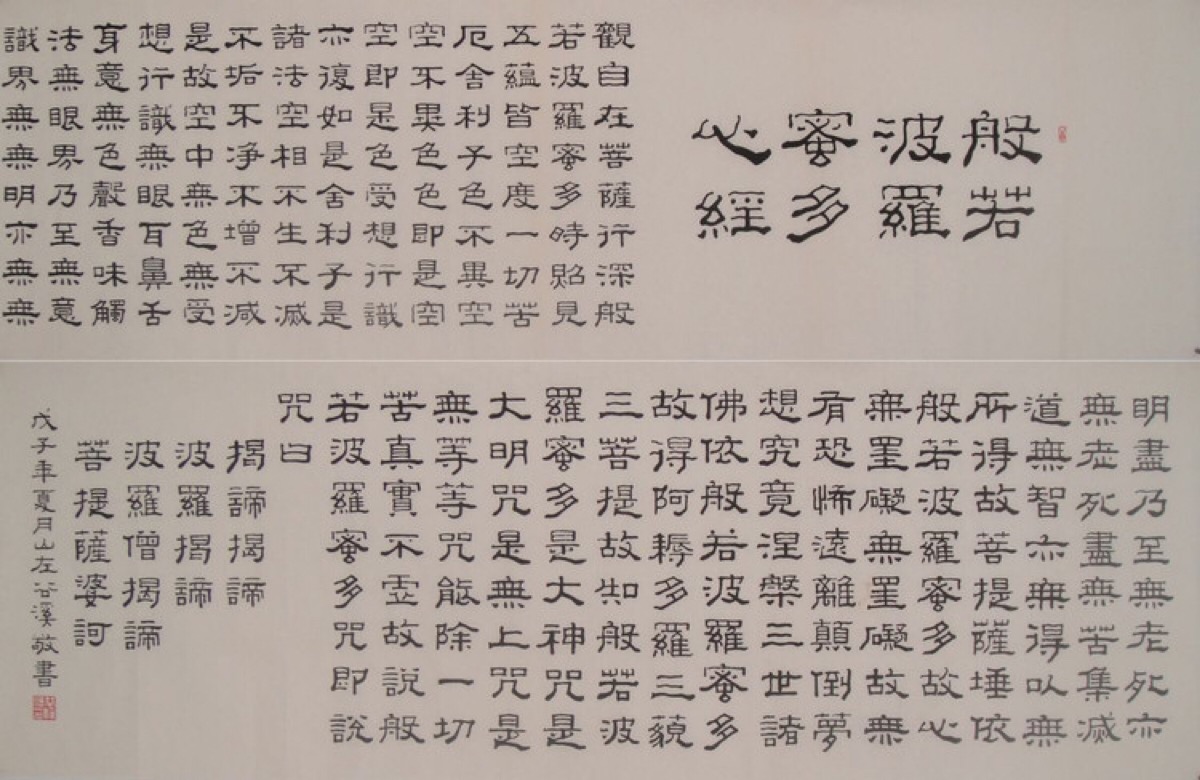 般若
波羅
蜜多
心經
觀自在菩薩行深般
若波羅蜜多時照見
五蘊皆空度一切苦
厄舍利子色不異空
空不異色色即是空
空即是色受想行識
亦復如是舍利子是
諸法空相不生不滅
不垢不净不增不减
是故空中無色無受
想行識無眼耳鼻舌
身意無色聲香味觸
法無眼界乃至無意
識界無無明亦無無
明盡乃至無老死亦
無老死盡無苦集滅
道無智亦無得以無
所得故菩提薩埵依
般若波羅蜜多故心
無罣礙無罣礙故無
有恐怖遠離顛倒夢
想究竟涅槃三世諸
佛依般若波羅蜜多
故得阿耨多羅三藐
三菩提故知般若波
羅蜜多是大神咒是
大明咒是無上咒是
無等等咒能除一切
苦真實不虛故說般
若波羅蜜多咒即說
咒曰
揭諦揭諦
波羅揭諦
波羅僧揭諦
菩提薩婆訶
戊子年夏月山左谷溪敬書